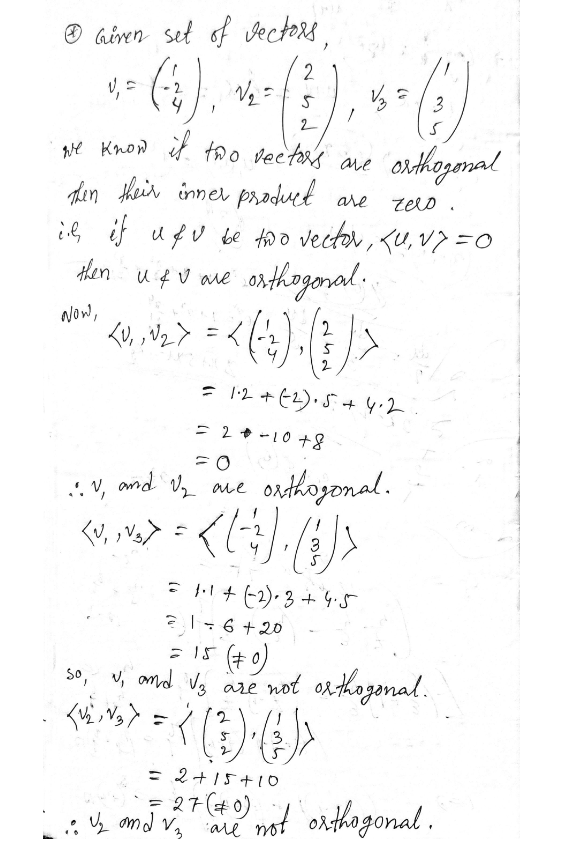 ⊛ Given set of vectors,
v₁ = (1 -2 4), v₂ = (2 5 2), v₃ = (1 3 5)
we know if two vectors are orthogonal
then their inner product are zero.
i.e, if u & v be two vector, <u, v> = 0
then u & v are orthogonal.
Now,
<v₁, v₂> = <(1 -2 4), (2 5 2)>
= 1·2 + (-2)·5 + 4·2
= 2 + -10 + 8
= 0
∴ v₁ and v₂ are orthogonal.
<v₁, v₃> = <(1 -2 4), (1 3 5)>
= 1·1 + (-2)·3 + 4·5
= 1 - 6 + 20
= 15 (≠ 0)
so, v₁ and v₃ are not orthogonal.
<v₂, v₃> = <(2 5 2), (1 3 5)>
= 2 + 15 + 10
= 27 (≠ 0)
∴ v₂ and v₃ are not orthogonal.